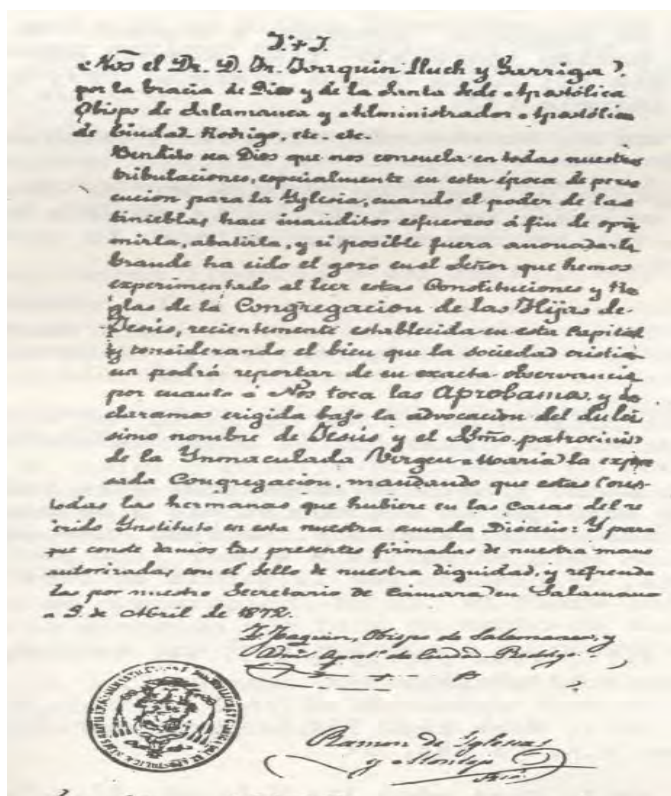 J. + J.
Nos el Dr. D. Fr. Joaquin Lluch y Garriga
por la Gracia de Dios y de la Santa Sede Apostólica
Obispo de Salamanca y Administrador Apostólico
de Ciudad Rodrigo, etc. etc.
Bendito sea Dios que nos consuela en todas nuestras
tribulaciones, especialmente en esta época de perse
cucion para la Yglesia, cuando el poder de las
tinieblas hace inauditos esfuerzos á fin de opri
mirla, abatirla, y si posible fuera anonadarla
Grande ha sido el gozo en el Señor que hemos
experimentado al leer estas Constituciones y Re
glas de la Congregacion de las Hijas de
Jesús, recientemente establecida en esta Capital
y considerando el bien que la sociedad cristia
na podrá reportar de su exacta observancia
por cuanto á Nos toca las Aprobamos, y de
claramos erigida bajo la advocacion del dulcí
simo nombre de Jesús y el patrocinio
de la Ynmaculada Virgen Maria la expre
sada Congregacion, mandando que estas Cons-
todas las hermanas que hubiere en las Casas del re
ferido Ynstituto en esta nuestra amada Diócesis: Y para
que conste damos las presentes firmadas de nuestra mano
autorizadas con el Sello de nuestra dignidad, y refrenda
das por nuestro Secretario de Cámara en Salamanca
a de Abril de 1872.
F. Joaquin, Obispo de Salamanca, y
Apost. de Ciudad-Rodrigo
Ramon de Yglesias
y Montejo
Srio.